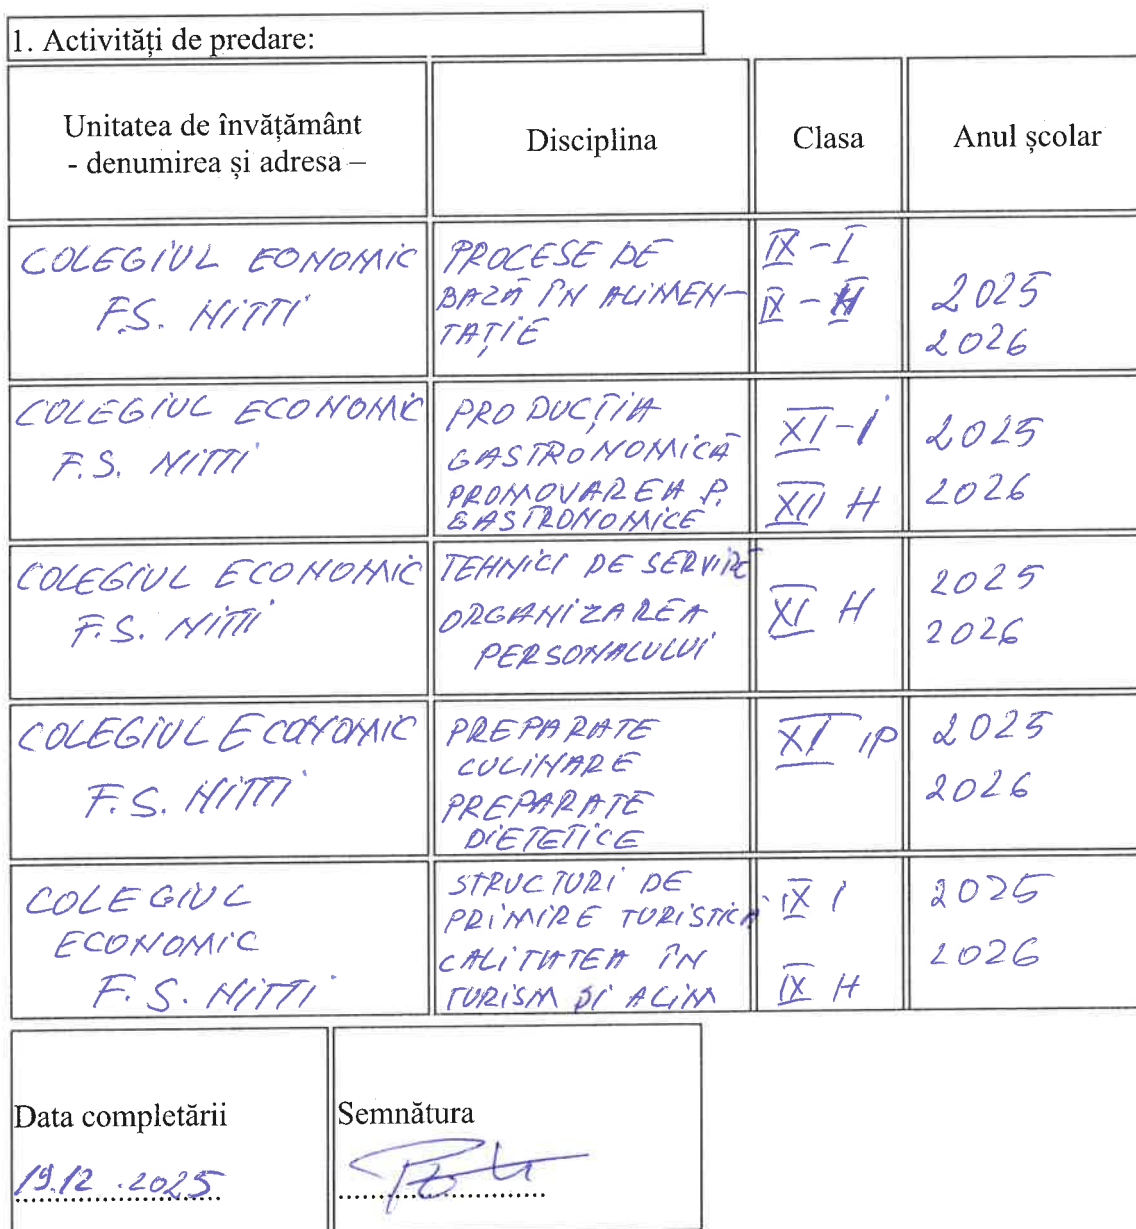 1. Activități de predare:
Unitatea de învățământ
- denumirea și adresa –
Disciplina
Clasa
Anul școlar
COLEGIUL EONOMIC
F.S. NITTI
PROCESE DE
BAZĂ ÎN ALIMEN-
TAȚIE
IX - I
IX - H
2025
2026
COLEGIUL ECONOMIC
F.S. NITTI
PRODUCȚIA
GASTRONOMICĂ
PROMOVAREA P.
GASTRONOMICE
XI - I
XII H
2025
2026
COLEGIUL ECONOMIC
F.S. NITTI
TEHNICI DE SERVIRE
ORGANIZAREA
PERSONALULUI
XI H
2025
2026
COLEGIUL ECONOMIC
F.S. NITTI
PREPARATE
CULINARE
PREPARATE
DIETETICE
XI IP
2025
2026
COLEGIUL
ECONOMIC
F.S. NITTI
STRUCTURI DE
PRIMIRE TURISTICĂ
CALITATEA ÎN
TURISM ȘI ALIM
IX I
IX H
2025
2026
Data completării
19.12.2025
Semnătura